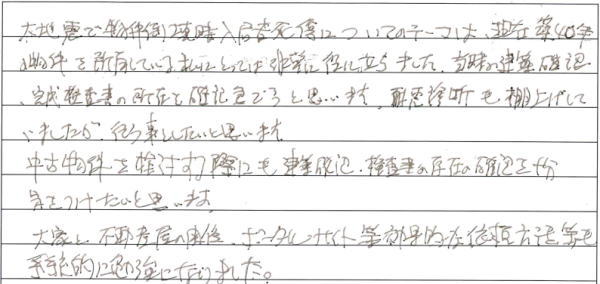 大地震で物件倒壊時入居者死傷についてのテーマは、現在築40年
の物件を所有している私にとっては非常に役に立ちました。当時の建築確認
、完成検査書の所在を確認しようと思います。耐震診断も棚上げして
いましたが、行いたいと思います
中古物件を検討する際にも建築確認・検査書の存在の確認を十分
気をつけたいと思います
大家と不動産屋の関係、ポータルサイト等効果的な依頼方法等も
具体的に勉強になりました。